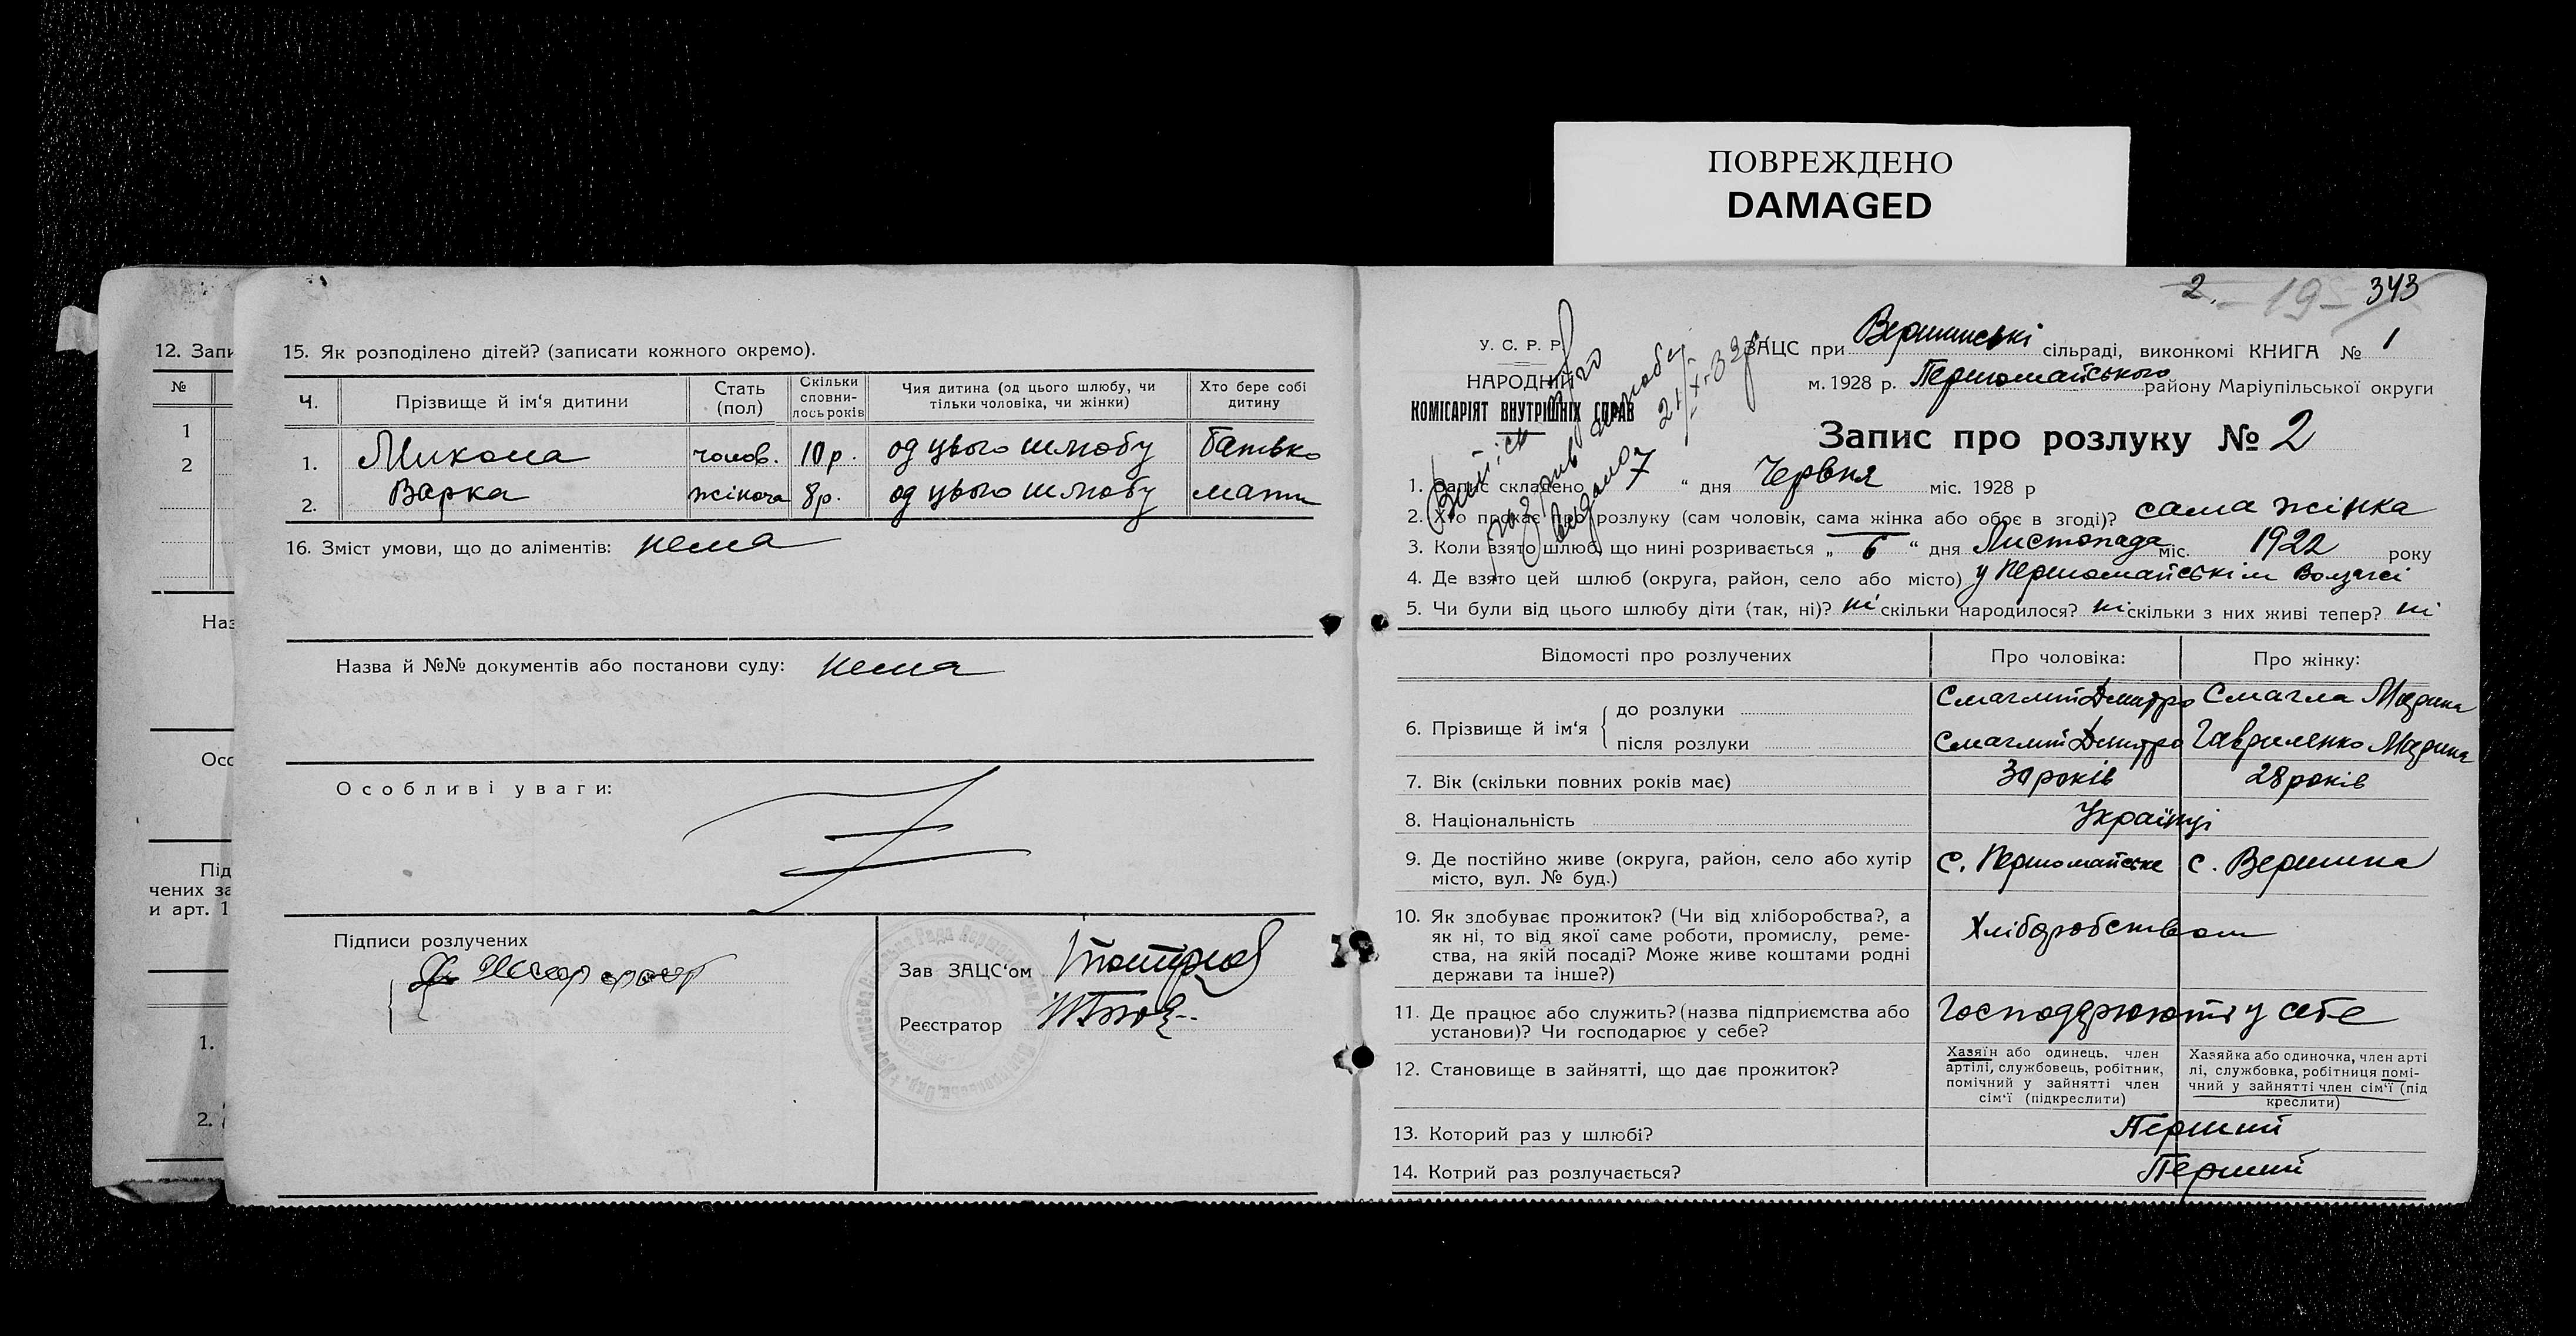 ПОВРЕЖДЕНО
DAMAGED
12. Запи
№
1
2
Наз
Осо
Під
чених за
и арт. 1
1.
2.
15. Як розподілено дітей? (записати кожного окремо).
Ч. Прізвище й ім'я дитини Стать (пол) Скільки сповнилось років Чия дитина (од цього шлюбу, чи тільки чоловіка, чи жінки) Хто бере собі дитину
1. Микола чолов. 10 р. од цього шлюбу Батько
2. Варка жіноча 8 р. од цього шлюбу мати
16. Зміст умови, що до аліментів: нема
Назва й №№ документів або постанови суду: нема
Особливі уваги:
Підписи розлучених
Зав ЗАЦС'ом
Реєстратор
2. 19 343
У. С. Р. Р.
НАРОДНІЙ
КОМІСАРІЯТ ВНУТРІШНІХ СПРАВ
ЗАЦС при Вершинські сільраді, виконкомі КНИГА № 1
м. 1928 р. Першомайського району Маріупільської округи
Запис про розлуку № 2
1. Запис складено 7 " дня Червня міс. 1928 р
2. Хто прохає про розлуку (сам чоловік, сама жінка або обоє в згоді)? сама жінка
3. Коли взято шлюб, що нині розривається „ 6 " дня Листопада міс. 1922 року
4. Де взято цей шлюб (округа, район, село або місто) у Першомайськім
5. Чи були від цього шлюбу діти (так, ні)? ні скільки народилося? ні скільки з них живі тепер? ні
Відомості про розлучених Про чоловіка: Про жінку:
6. Прізвище й ім'я
до розлуки Смаглій Дмитро Смагла Марина
після розлуки Смаглій Дмитро Гавриленко Марина
7. Вік (скільки повних років має) 30 років 28 років
8. Національність Українці
9. Де постійно живе (округа, район, село або хутір
місто, вул. № буд.) с. Першомайське с. Вершина
10. Як здобуває прожиток? (Чи від хліборобства?, а
як ні, то від якої саме роботи, промислу, реме-
ства, на якій посаді? Може живе коштами родні
держави та інше?) Хліборобством
11. Де працює або служить? (назва підприємства або
установи)? Чи господарює у себе? Господарюють у себе
12. Становище в зайнятті, що дає прожиток?
Хазяїн або одинець, член
артілі, службовець, робітник,
помічний у зайнятті член
сім'ї (підкреслити)
Хазяйка або одиночка, член арті
лі, службовка, робітниця помі-
чний у зайнятті член сім'ї (під
креслити)
13. Которий раз у шлюбі? Перший
14. Котрий раз розлучається? Перший